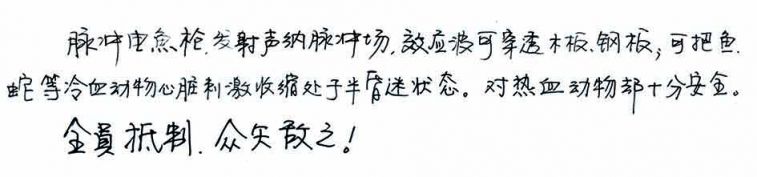 脉冲电鱼枪,发射声纳脉冲场,效应波可穿透木板、钢板,可把鱼.
蛇等冷血动物心脏刺激收缩处于半昏迷状态。对热血动物却十分安全。
全員抵制.众矢敌之!